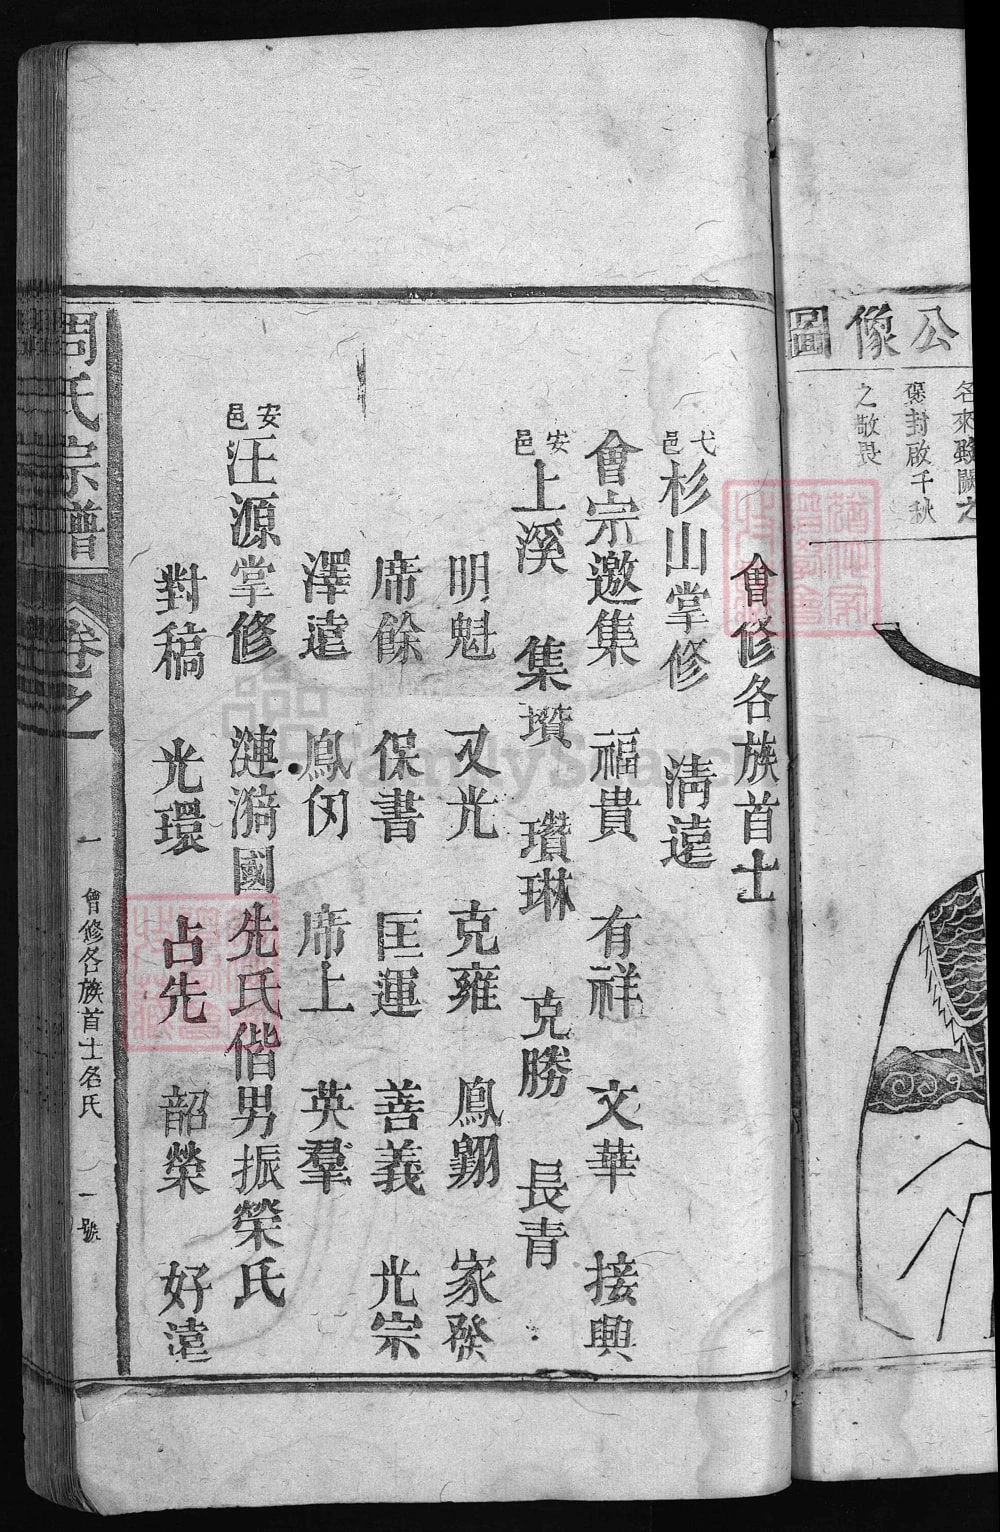 公像圖
名來
褒封啟千秋
之敬畏
會修各族首士
弋邑杉山掌修 清遠
會宗邀集 福貴 有祥 文華 接興
安邑上溪 集瓚 瓚琳 克勝 長青
明魁 又光 克雍 鳳翺 家發
席餘 保書 匡運 善義 光宗
澤遠 鳳 席上 英羣
安邑汪源掌修 漣漪國先氏偕男振榮氏
對稿 光環 占先 韶榮 好遠
周氏宗譜 卷之 一 會修各族首士名氏 一號
FamilySearch